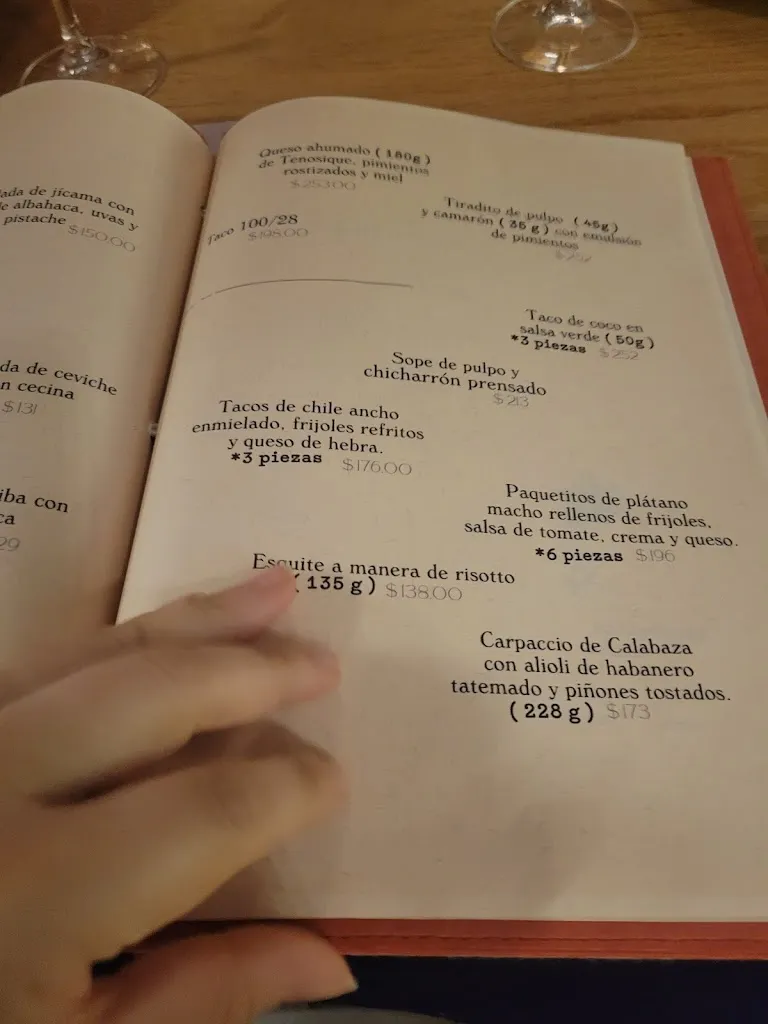 ada de jícama con
e albahaca, uvas y
pistache
$150.00
da de ceviche
n cecina
$131
iba con
ca
29
Queso ahumado (180g)
de Tenosique, pimientos
rostizados y miel
$253.00
Tiradito de pulpo (45g)
y camarón (35 g) con emulsión
de pimientos
Taco 100/28
$198.00
Taco de coco en
salsa verde (50g)
*3 piezas $252
Sope de pulpo y
chicharrón prensado
$213
Tacos de chile ancho
enmielado, frijoles refritos
y queso de hebra.
*3 piezas $176.00
Paquetitos de plátano
macho rellenos de frijoles,
salsa de tomate, crema y queso.
*6 piezas $196
Esquite a manera de risotto
(135 g) $138.00
Carpaccio de Calabaza
con alioli de habanero
tatemado y piñones tostados.
(228 g) $173